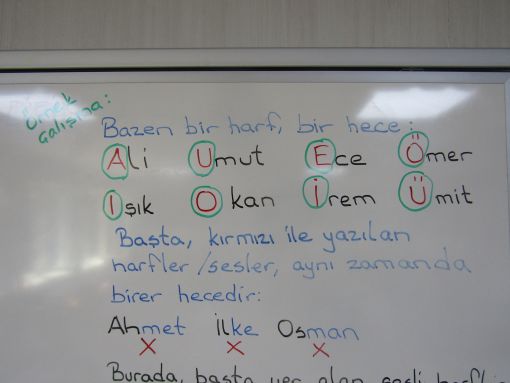 Örnek
Çalışma:
Bazen bir harf, bir hece:
Ali Umut Ece Ömer
Işık Okan İrem Ümit
Başta, kırmızı ile yazılan
harfler/sesler, aynı zamanda
birer hecedir:
Ahmet İlke Osman
X X X
Burada, başta yer alan sesli